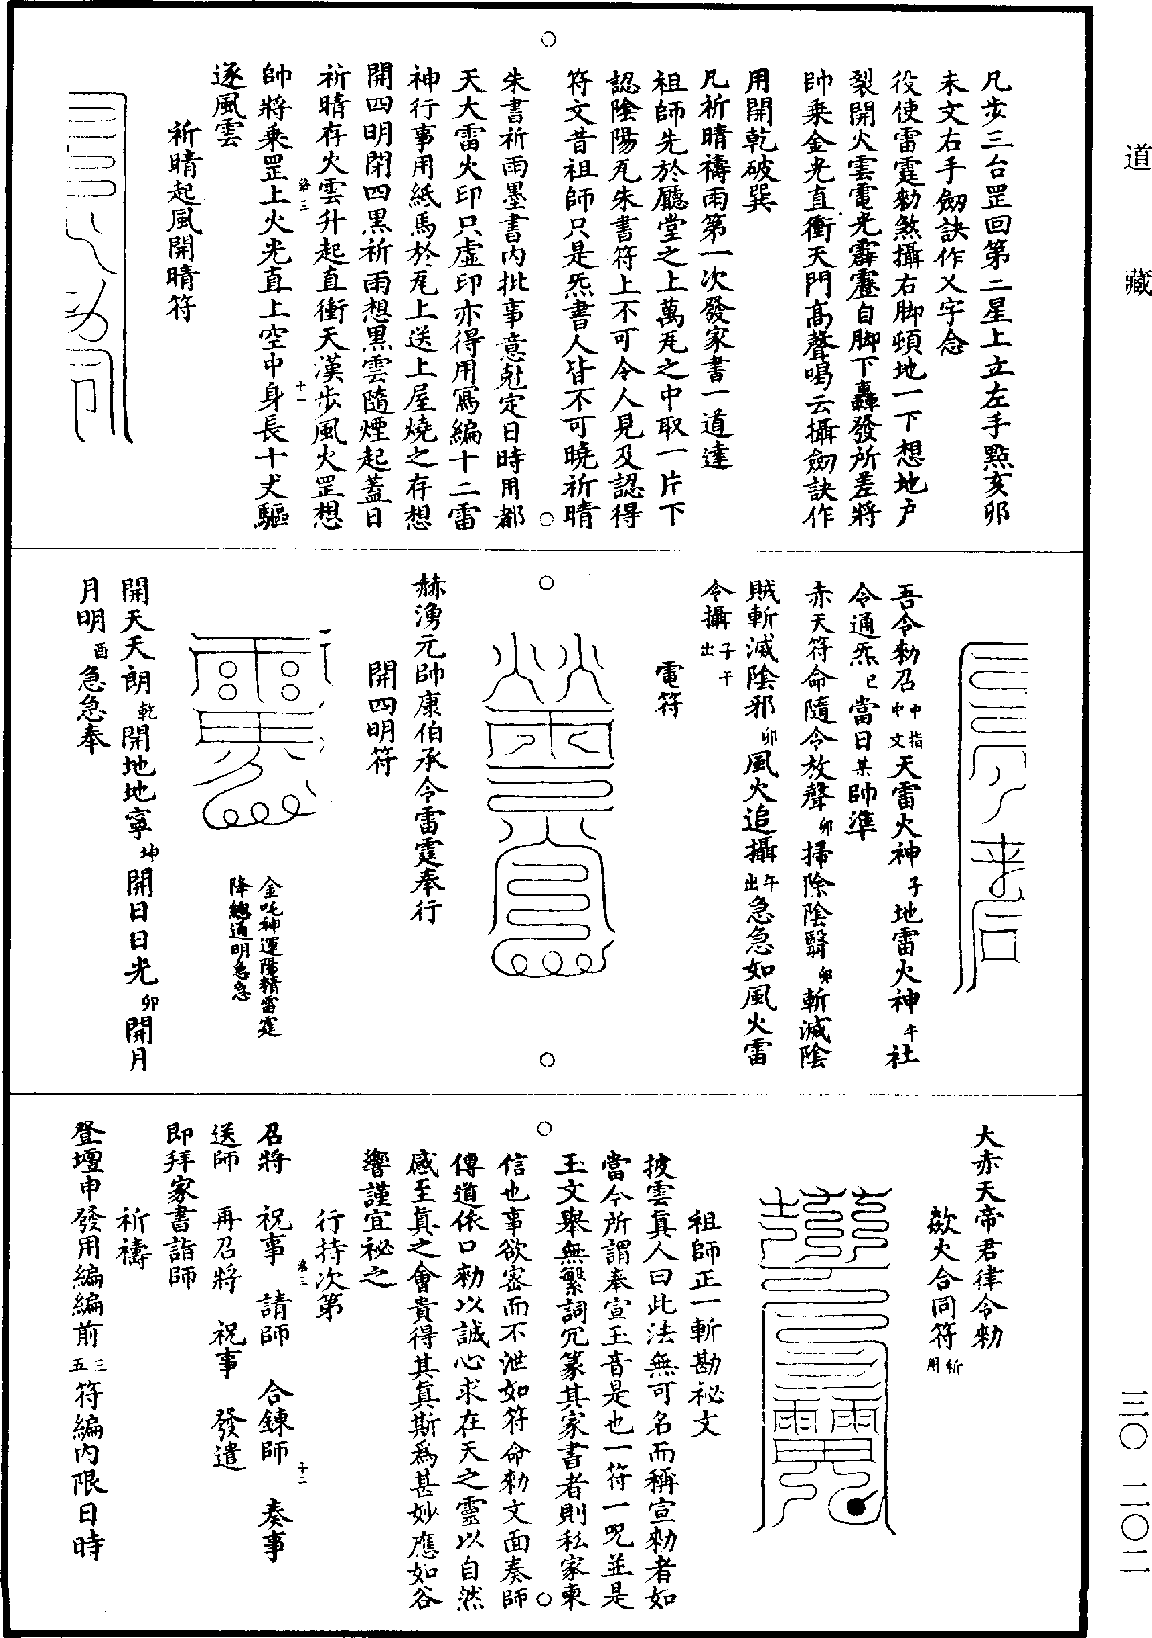 道藏
凡步三台罡回第二星上立左手點亥卯
未文右手劒訣作乂字念
役使雷霆勑煞攝右脚頓地一下想地戶
裂開火雲電光霹靂自脚下轟發所差將
帥乘金光直衝天門高聲喝云攝劒訣作
用開乾破巽
凡祈晴禱雨第一次發家書一道達
祖師先於廳堂之上萬瓦之中取一片下
認陰陽瓦朱書符上不可令人見及認得
符文昔祖師只是炁書人皆不可曉祈晴
朱書祈雨墨書內批事意尅定日時用都
天大雷火印只虛印亦得用寫編十二雷
神行事用紙馬於瓦上送上屋燒之存想
開四明閉四黑祈雨想黑雲隨煙起蓋日
祈晴存火雲升起直衝天漢步風火罡想
帥將乘罡上火光直上空中身長十丈驅
逐風雲
祈晴起風開晴符
吾令勑召中指中文天雷火神子地雷火神午社
令通炁巳當日某帥準
赤天符命隨令放聲卯掃除陰翳卯斬滅陰
賊斬滅陰邪卯風火追攝午出急急如風火雷
令攝子午出
電符
赫湧元帥康伯承令雷霆奉行
開四明符
金吒神運陽精雷霆
降總通明急急
開天天朗乾開地地寧坤開日日光卯開月
月明酉急急奉
大赤天帝君律令勑
歘火合同符祈用
祖師正一斬勘祕文
披雲眞人曰此法無可名而稱宣勑者如
當今所謂奉宣玉音是也一符一咒並是
玉文舉無繁詞冗篆其家書者則私家柬
信也事欲密而不泄如符命勑文面奏師
傳道依口勑以誠心求在天之靈以自然
感至眞之會貴得其眞斯爲甚妙應如谷
響謹宜祕之
行持次第
召將　祝事　請師　合鍊師　奏事
送師　再召將　祝事　發遣
即拜家書詣師
祈禱
登壇申發用編編前三五符編內限日時
三〇　二〇二